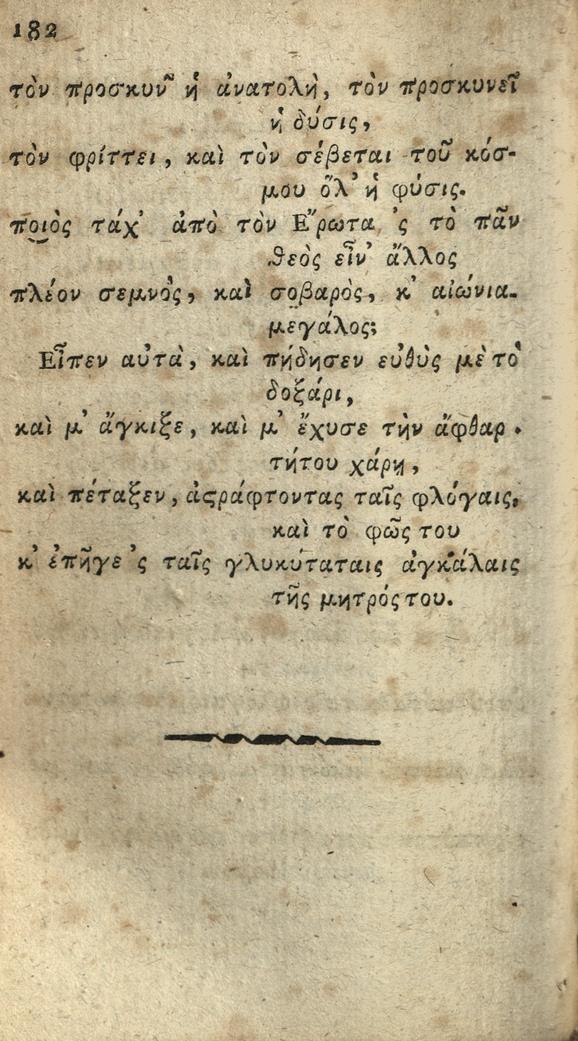 182
τὸν προσκυν῀ ἡ ἀνατολὴ, τὸν προσκυνεῖ
ἡ δύσις,
τὸν φρίττει, καὶ τὸν σέβεται τοῦ κόσ-
μου ὅλ' ἡ φύσις.
ποιὸς τάχ' ἀπὸ τὸν Ἔρωτα 'ς τὸ πᾶν
θεὸς εἶν' ἄλλος
πλέον σεμνὸς, καὶ σοβαρὸς, κ' αἰώνια-
μεγάλος;
Εἶπεν αὐτὰ, καὶ πήδησεν εὐθὺς μὲ τὸ
δοξάρι,
καὶ μ' ἄγκιξε, καὶ μ' ἔχυσε τὴν ἄφθαρ-
τήτου χάρη,
καὶ πέταξεν, ἀςράφτοντας ταῖς φλόγαις,
καὶ τὸ φῶς του
κ' ἐπῆγε 'ς ταῖς γλυκύταταις ἀγκάλαις
τῆς μητρός του.